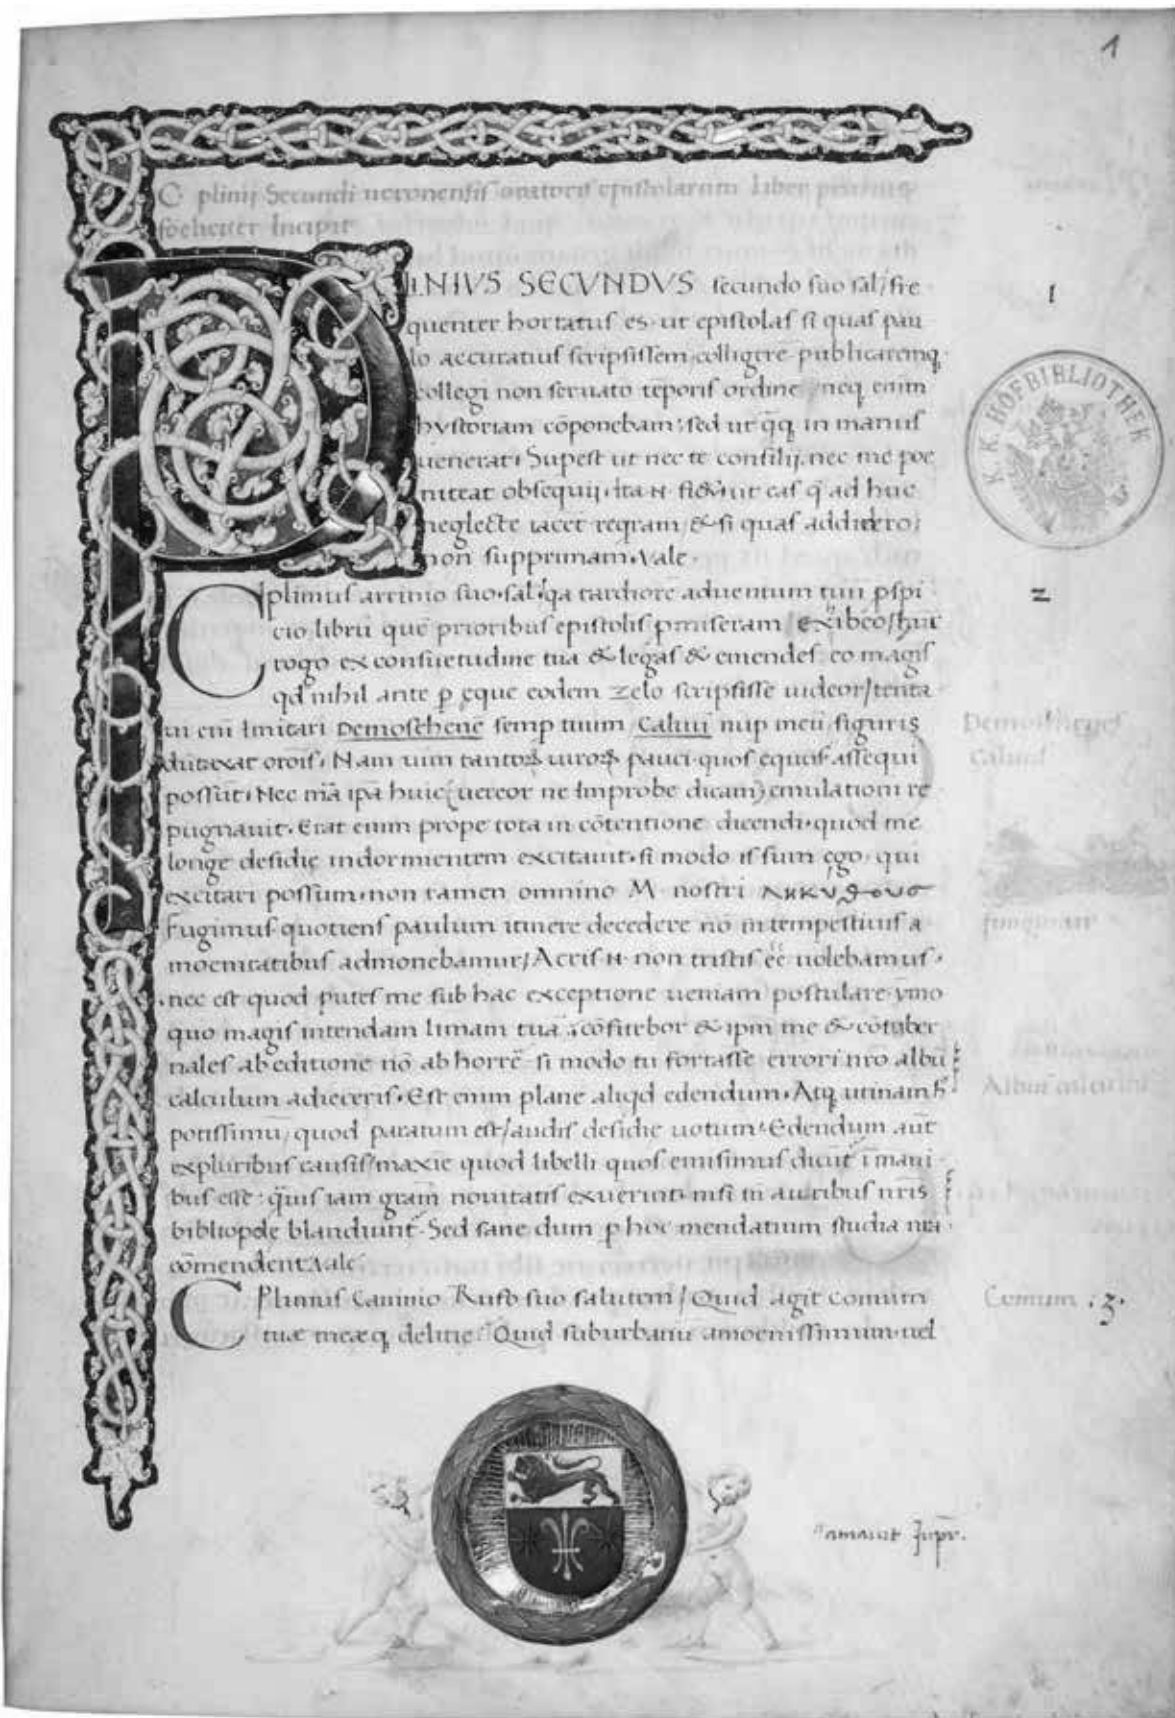 1
C plinij Secundi ueronensis oratoris epistolarum Liber primus
foeliciter Incipit
PLINIVS SECVNDVS secundo suo sal/ fre
quenter hortatus es ut epistolas si quas pau
lo accuratius scripsissem/ colligere publicaremq
collegi non seruato tēporis ordine / neq enim
hystoriam cōponebam: sed ut q̄q in manus
uenerat: Supest ut nec te consilij. nec me poe
niteat obsequij. ita N fiet ut eas q̄ ad huc
neglecte iacēt reqram / & si quas addidero/
non supprimam. Vale.
C plinius arriano suo. sal. qa tardiorē aduentum tuū pspi
cio librū quē prioribus epistolis pmiseram / exibeo/ hūc
rogo ex consuetudine tua & legas & emendes. eo magis
qd nihil ante p ęque eodem zelo scripsisse uideor/ tenta
ui eni Imitari Demosthenē semp tuum / Caluū nup meū/ figuris
dūtaxat orōis. Nam uim tantoꝝ uiroꝝ pauci quos equus assequi
possūt. Nec mā ipā huic (uereor ne Improbe dicam) emulationi re
pugnauit. Erat enim prope tota in cōtentione dicendi. quod me
longe desidię indormientem excitauit. si modo is sum ego. qui
excitari possum. non tamen omnino M nostri
Fugimus quotiens paulum itinere decedere nō intempestiuis a
moenitatibus admonebamur/ Acris N non tristis eē uolebamus.
nec est quod putes me sub hac exceptione ueniam postulare ymo
quo magis intendam limam tuā. cōfitebor & ipm me & cōtuber
nales ab editione nō ab horrē si modo tu fortasse errori nro albū
calculum adieceris. Est enim plane aliqd edendum. Atq utinam h
potissimū/ quod paratum est/ audis desidię uotum. Edendum aūt
expluribus causis/ maxīe quod libelli quos emisimus dicūt ī mani
bus esse. q̄uis iam gram nouitatis exuerint. nisi tn auribus nris
bibliopole blandiunt. Sed sane dum p hoc mendatium studia nra
cōmendent. Vale
C Plinius Caninio Rufo suo salutem / Quid agit comum
tuæ meæq delitię. Quid suburbanū amoenissimum. uel
1
K. K. HOFBIBLIOTHEK
2
Demosthenes
Caluus
Comum .3.